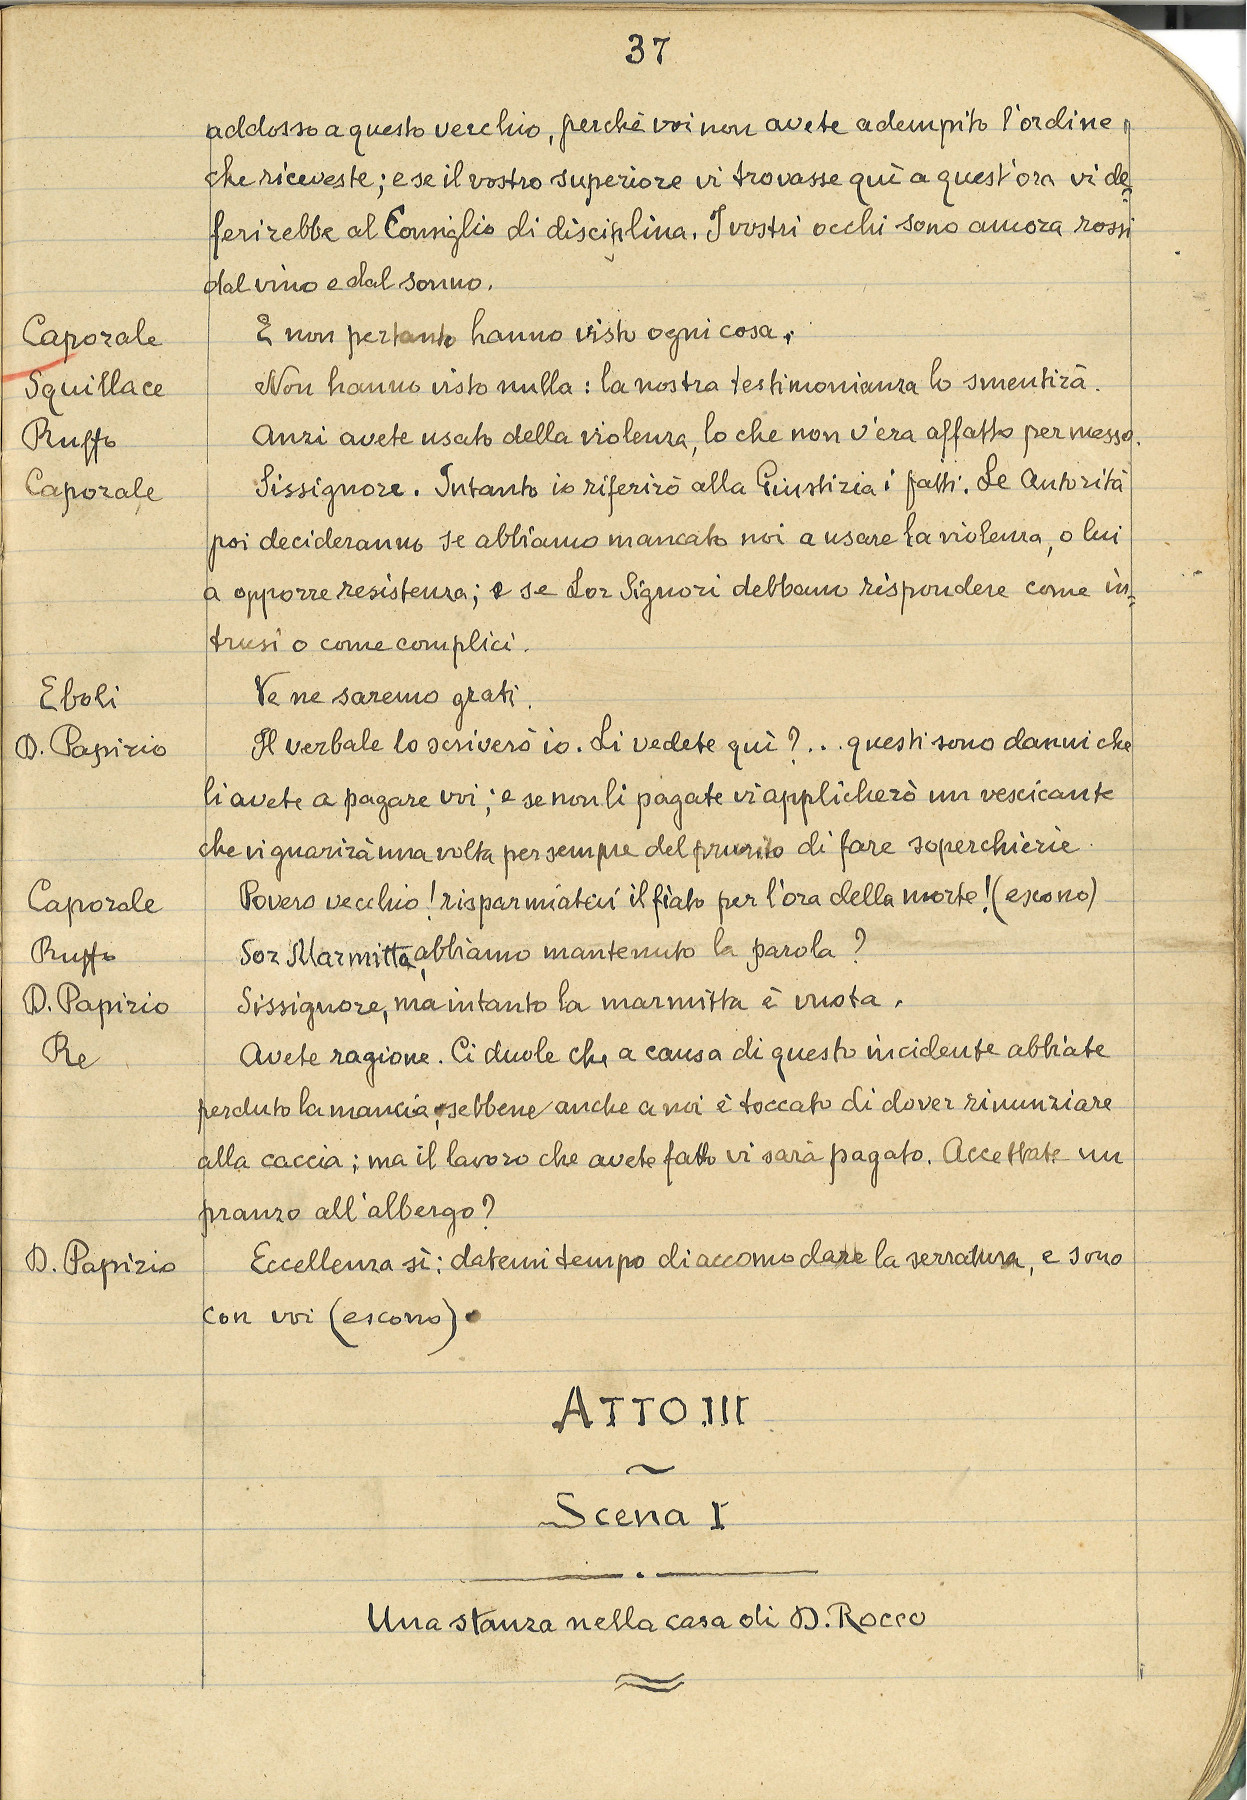 37
addosso a questo vecchio, perchè voi non avete adempito l'ordine
che riceveste; e se il vostro superiore vi trovasse quì a quest'ora vi de=
ferirebbe al Consiglio di disciplina. I vostri occhi sono ancora rossi
dal vino e dal sonno.
Caporale E non pertanto hanno visto ogni cosa.
Squillace Non hanno visto nulla: la nostra testimonianza lo smentirà.
Ruffo Anzi avete usato della violenza, lo che non v'era affatto permesso.
Caporale Sissignore. Intanto io riferirò alla Giustizia i fatti. Le Autorità
poi decideranno se abbiamo mancato noi a usare la violenza, o lui
a opporre resistenza; e se Lor Signori debbano rispondere come in=
trusi o come complici.
Eboli Ve ne saremo grati.
D. Papirio Il verbale lo scriverò io. Li vedete quì?... questi sono danni che
li avete a pagare voi; e se non li pagate vi applicherò un vescicante
che vi guarirà una volta per sempre del prurito di fare soperchierie.
Caporale Povero vecchio! risparmiatevi il fiato per l'ora della morte! (escono)
Ruffo Sor Marmitta, abbiamo mantenuto la parola?
D. Papirio Sissignore, ma intanto la marmitta è vuota.
Re Avete ragione. Ci duole che a causa di questo incidente abbiate
perduto la mancia, sebbene anche a noi è toccato di dover rinunziare
alla caccia; ma il lavoro che avete fatto vi sarà pagato. Accettate un
pranzo all'albergo?
D. Papirio Eccellenza sì: datemi tempo di accomodare la serratura, e sono
con voi (escono).
ATTO III
~
Scena I
Una stanza nella casa di D. Rocco